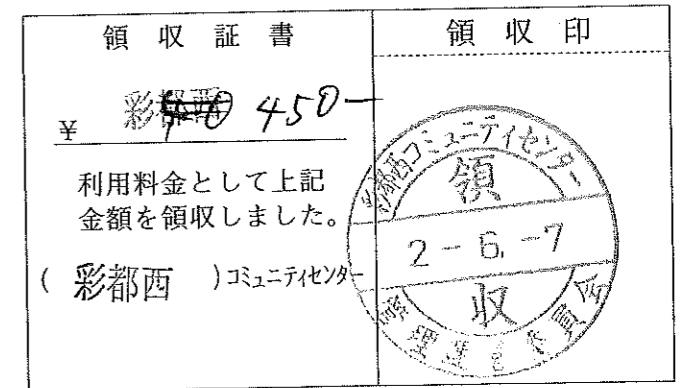 領収証書
領収印
彩都西
¥ 450-
利用料金として上記
金額を領収しました。
(彩都西)コミュニティセンター
彩都西コミュニティセンター
領
2-6.-7
収
管理運営委員会